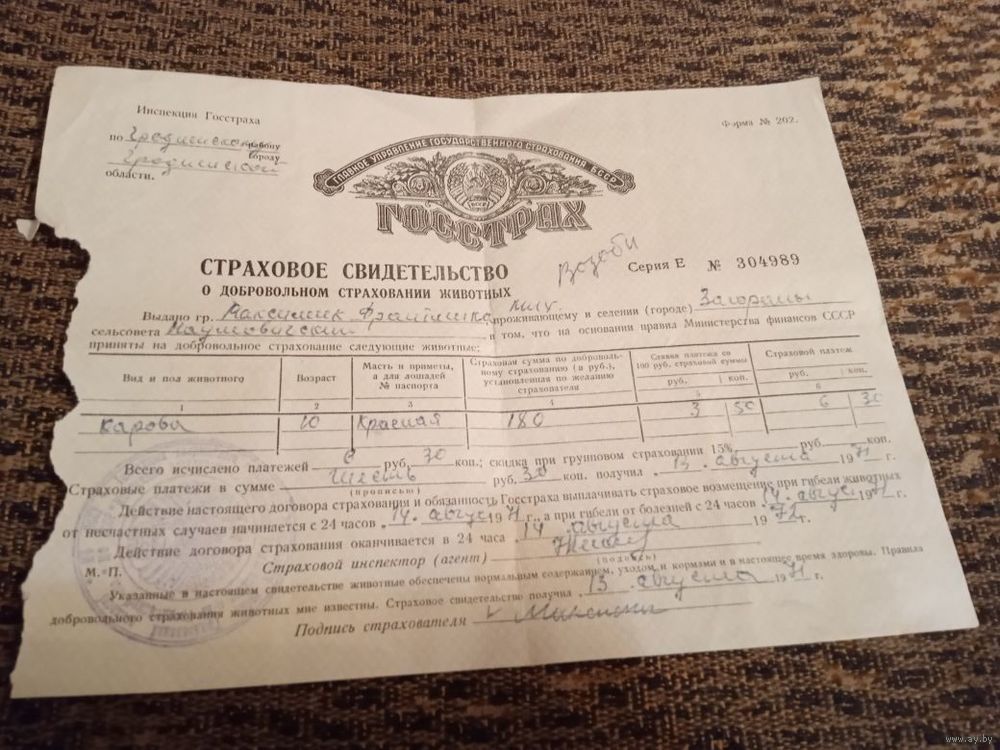 Инспекция Госстраха
по Гродненскому району
городу
Гродненской
области.
Форма № 202.
ГЛАВНОЕ УПРАВЛЕНИЕ ГОСУДАРСТВЕННОГО СТРАХОВАНИЯ БССР
БССР
ГОССТРАХ
СТРАХОВОЕ СВИДЕТЕЛЬСТВО
О ДОБРОВОЛЬНОМ СТРАХОВАНИИ ЖИВОТНЫХ
Серия Е № 304989
Выдано гр. проживающему в селении (городе) Загораны
сельсовета в том, что на основании правил Министерства финансов СССР
приняты на добровольное страхование следующие животные:
Вид и пол животного Возраст Масть и приметы, а для лошадей № паспорта Страховая сумма по добровольному страхованию (в руб.), установленная по желанию страхователя Ставка платежа со 100 руб. страховой суммы руб. коп. Страховой платеж руб. коп.
1 2 3 4 5 6
карова 10 Красная 180 3 50 6 30
Всего исчислено платежей 6 руб. 30 коп.; скидка при групповом страховании 15% руб. коп.
Страховые платежи в сумме Шесть руб. 30 коп. получил 13 августа 1971 г.
(прописью)
Действие настоящего договора страхования и обязанность Госстраха выплачивать страховое возмещение при гибели животных
от несчастных случаев начинается с 24 часов 14 август 1971 г., а при гибели от болезней с 24 часов 14 август 1971 г.
Действие договора страхования оканчивается в 24 часа 14 августа 1972 г.
М. П. Страховой инспектор (агент)
(подпись)
Указанные в настоящем свидетельстве животные обеспечены нормальным содержанием, уходом и кормами и в настоящее время здоровы. Правила
добровольного страхования животных мне известны. Страховое свидетельство получил 13 августа 1971 г.
Подпись страхователя
www.ay.by